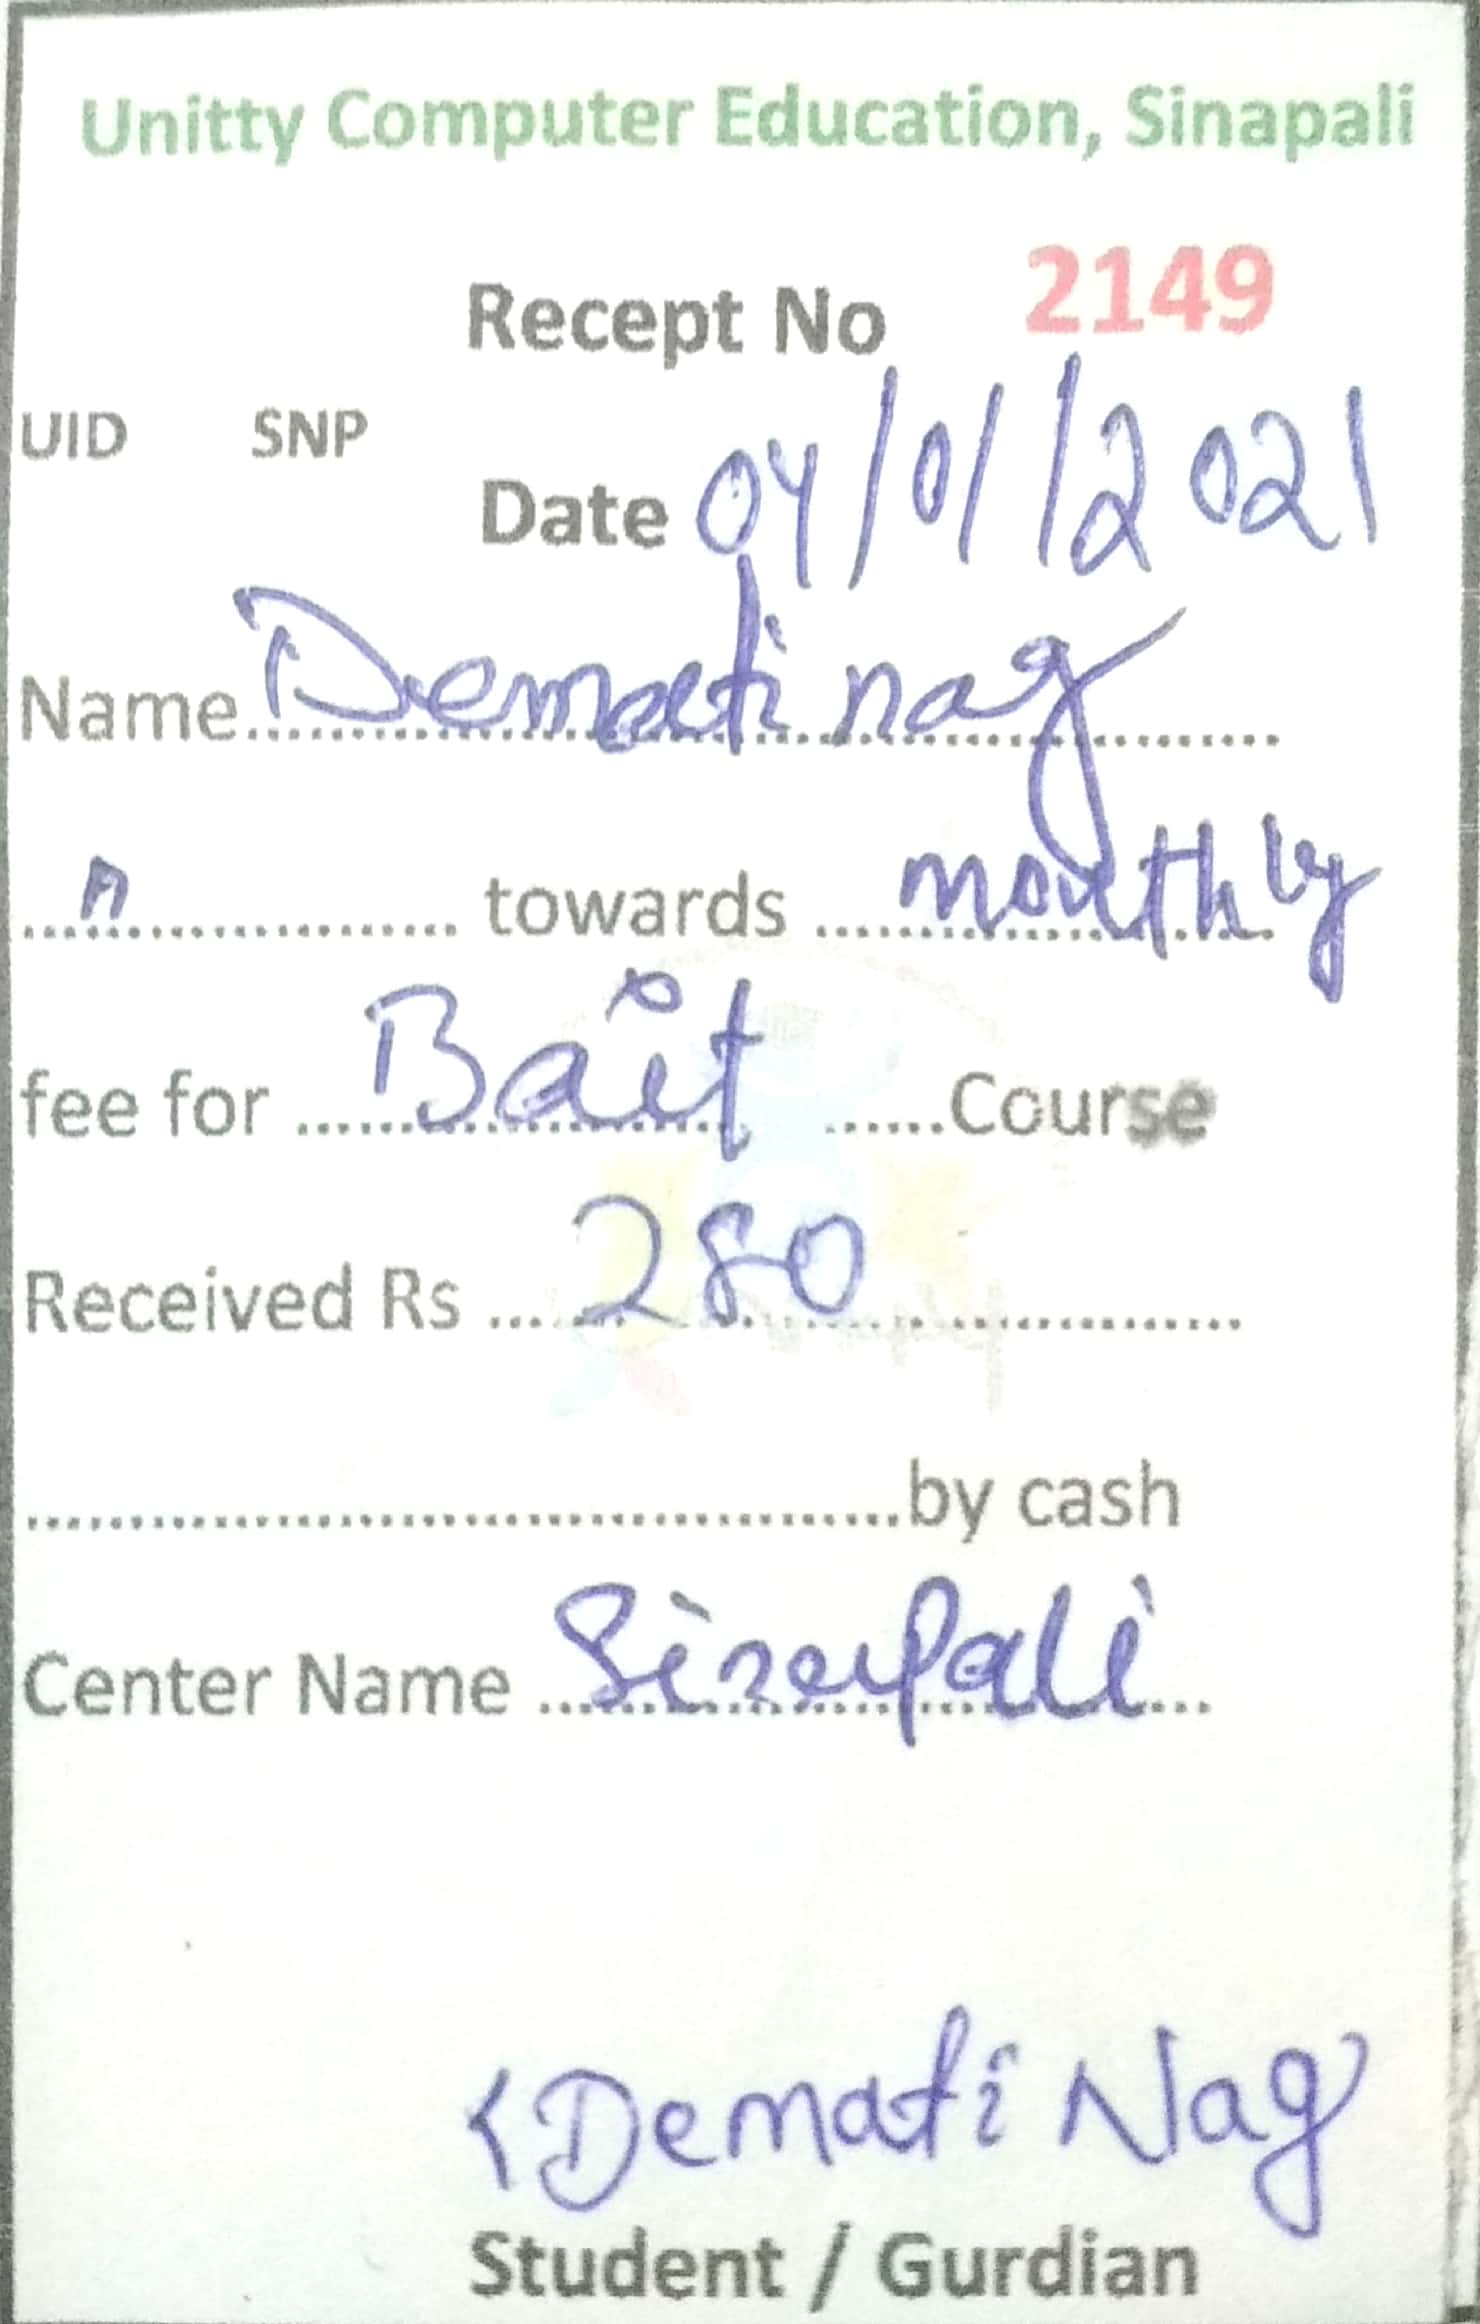 Unitty Computer Education, Sinapali
Recept No 2149
UID SNP
Date 04/01/2021
Name Demati nag
.................... towards monthly
fee for Bait ......Course
Received Rs ... 280 ..............
........................................by cash
Center Name Sinapali
Demati Nag
Student / Gurdian